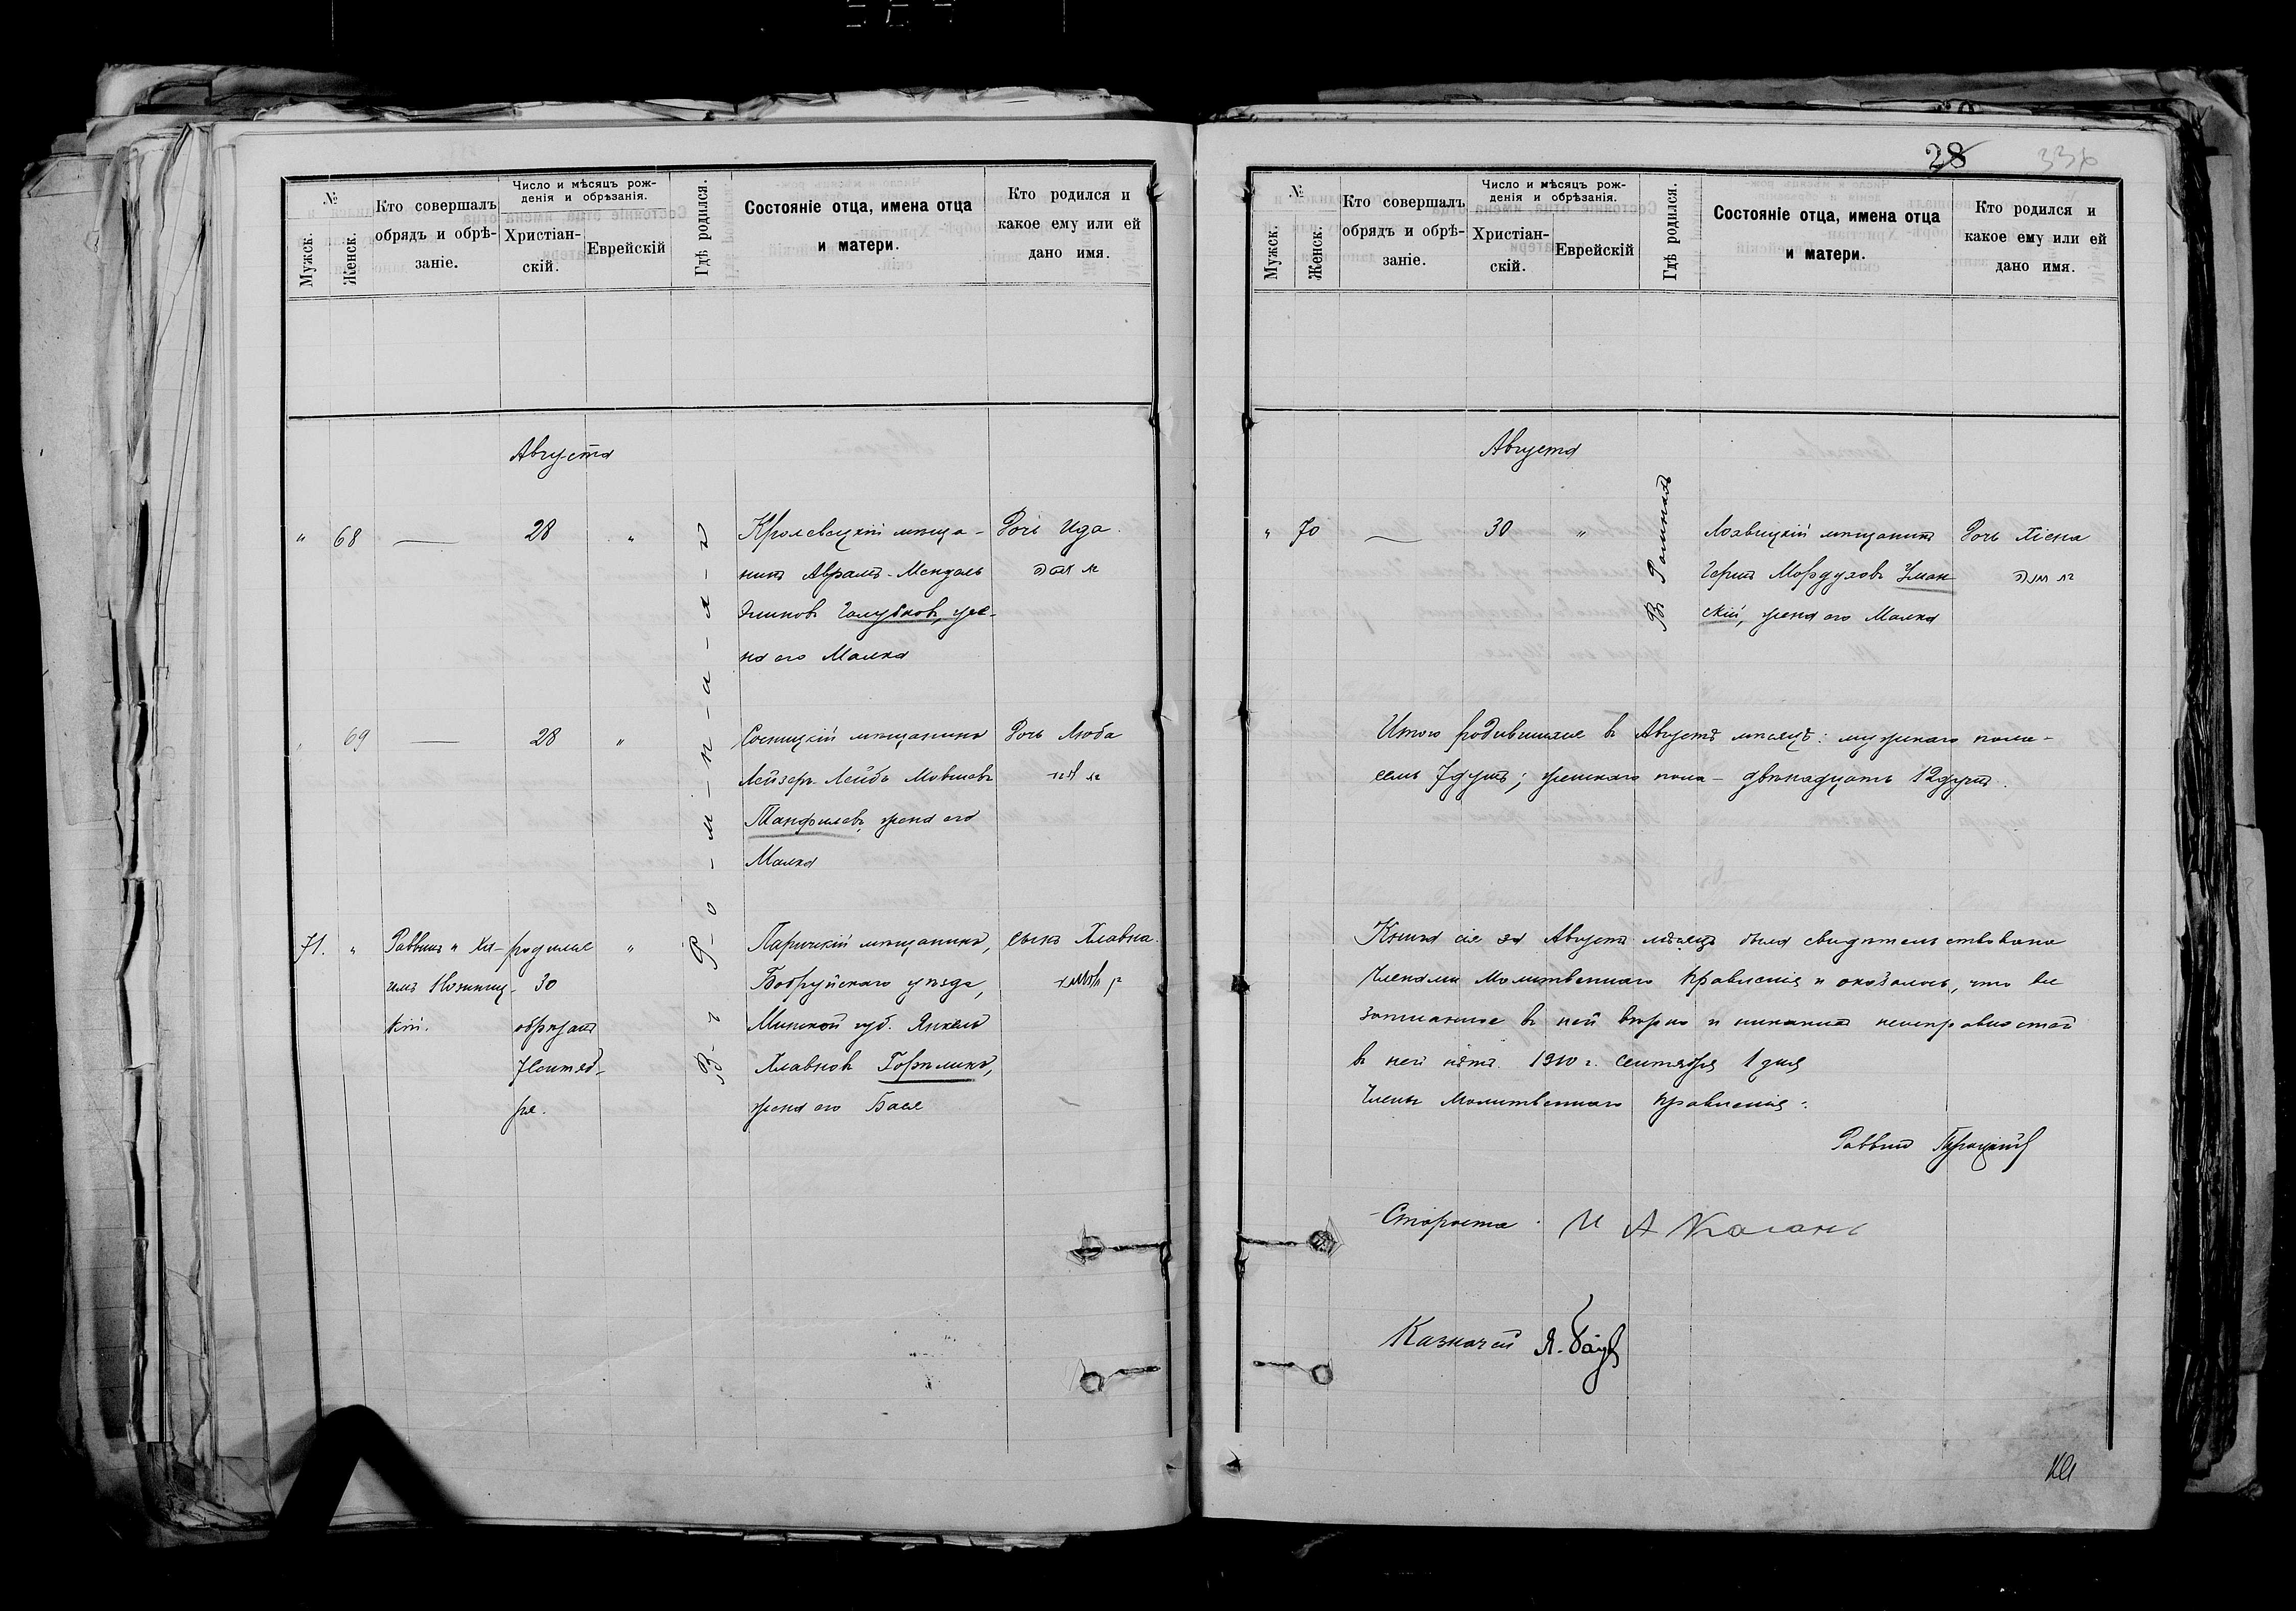 №
Мужск.
Женск.
Кто совершалъ
обрядъ и обрѣ-
заніе.
Число и мѣсяцъ рож-
денія и обрѣзанія.
Христіан-
скій.
Еврейскій
Гдѣ родился.
Состояніе отца, имена отца
и матери.
Кто родился и
какое ему или ей
дано имя.
Августа
" 68 — 28 "
Кролевецкій мѣща-
нинъ Абрамъ-Мендель
Голубковъ, же-
на его Малка
Дочь Ида
69 — 28 "
Сосницкій мѣщанинъ
Лейзеръ-Лейбъ Мовшевъ
Панфилевъ, жена его
Малка
Дочь Люба
В-ъ Р-о-м-н-а-х-ъ
71. "
Раввинъ и
кій.
родился
30
обрѣзанъ
7 Сентяб-
ря.
"
Паричскій мѣщанинъ,
Бобруйскаго уѣзда,
Минской губ. Янкель
Хлавновъ Горѣликъ,
жена его Бася
сынъ Хлавна
28
336
№
Мужск.
Женск.
Кто совершалъ
обрядъ и обрѣ-
заніе.
Число и мѣсяцъ рож-
денія и обрѣзанія.
Христіан-
скій.
Еврейскій
Гдѣ родился.
Состояніе отца, имена отца
и матери.
Кто родился и
какое ему или ей
дано имя.
Августа
" 70 — 30 "
Въ Ромнахъ
Лохвицкій мѣщанинъ
Герцъ Мордуховъ Уман-
скій, жена его Малка
Дочь Хіена
Итого родившихся въ Августѣ мѣсяцѣ: мужскаго пола-
семь 7 душъ; женскаго пола - двѣнадцать 12 душъ.
Книга сія за Августъ мѣсяцъ была свидѣтельствована
Членами Молитвеннаго Правленія и оказалось, что все
записанное въ ней вѣрно и никакихъ неисправностей
въ ней нѣтъ. 1910 г. Сентября 1 дня
Члены Молитвеннаго Правленія:
Раввинъ
Староста И А Каганъ
Казначей Я.